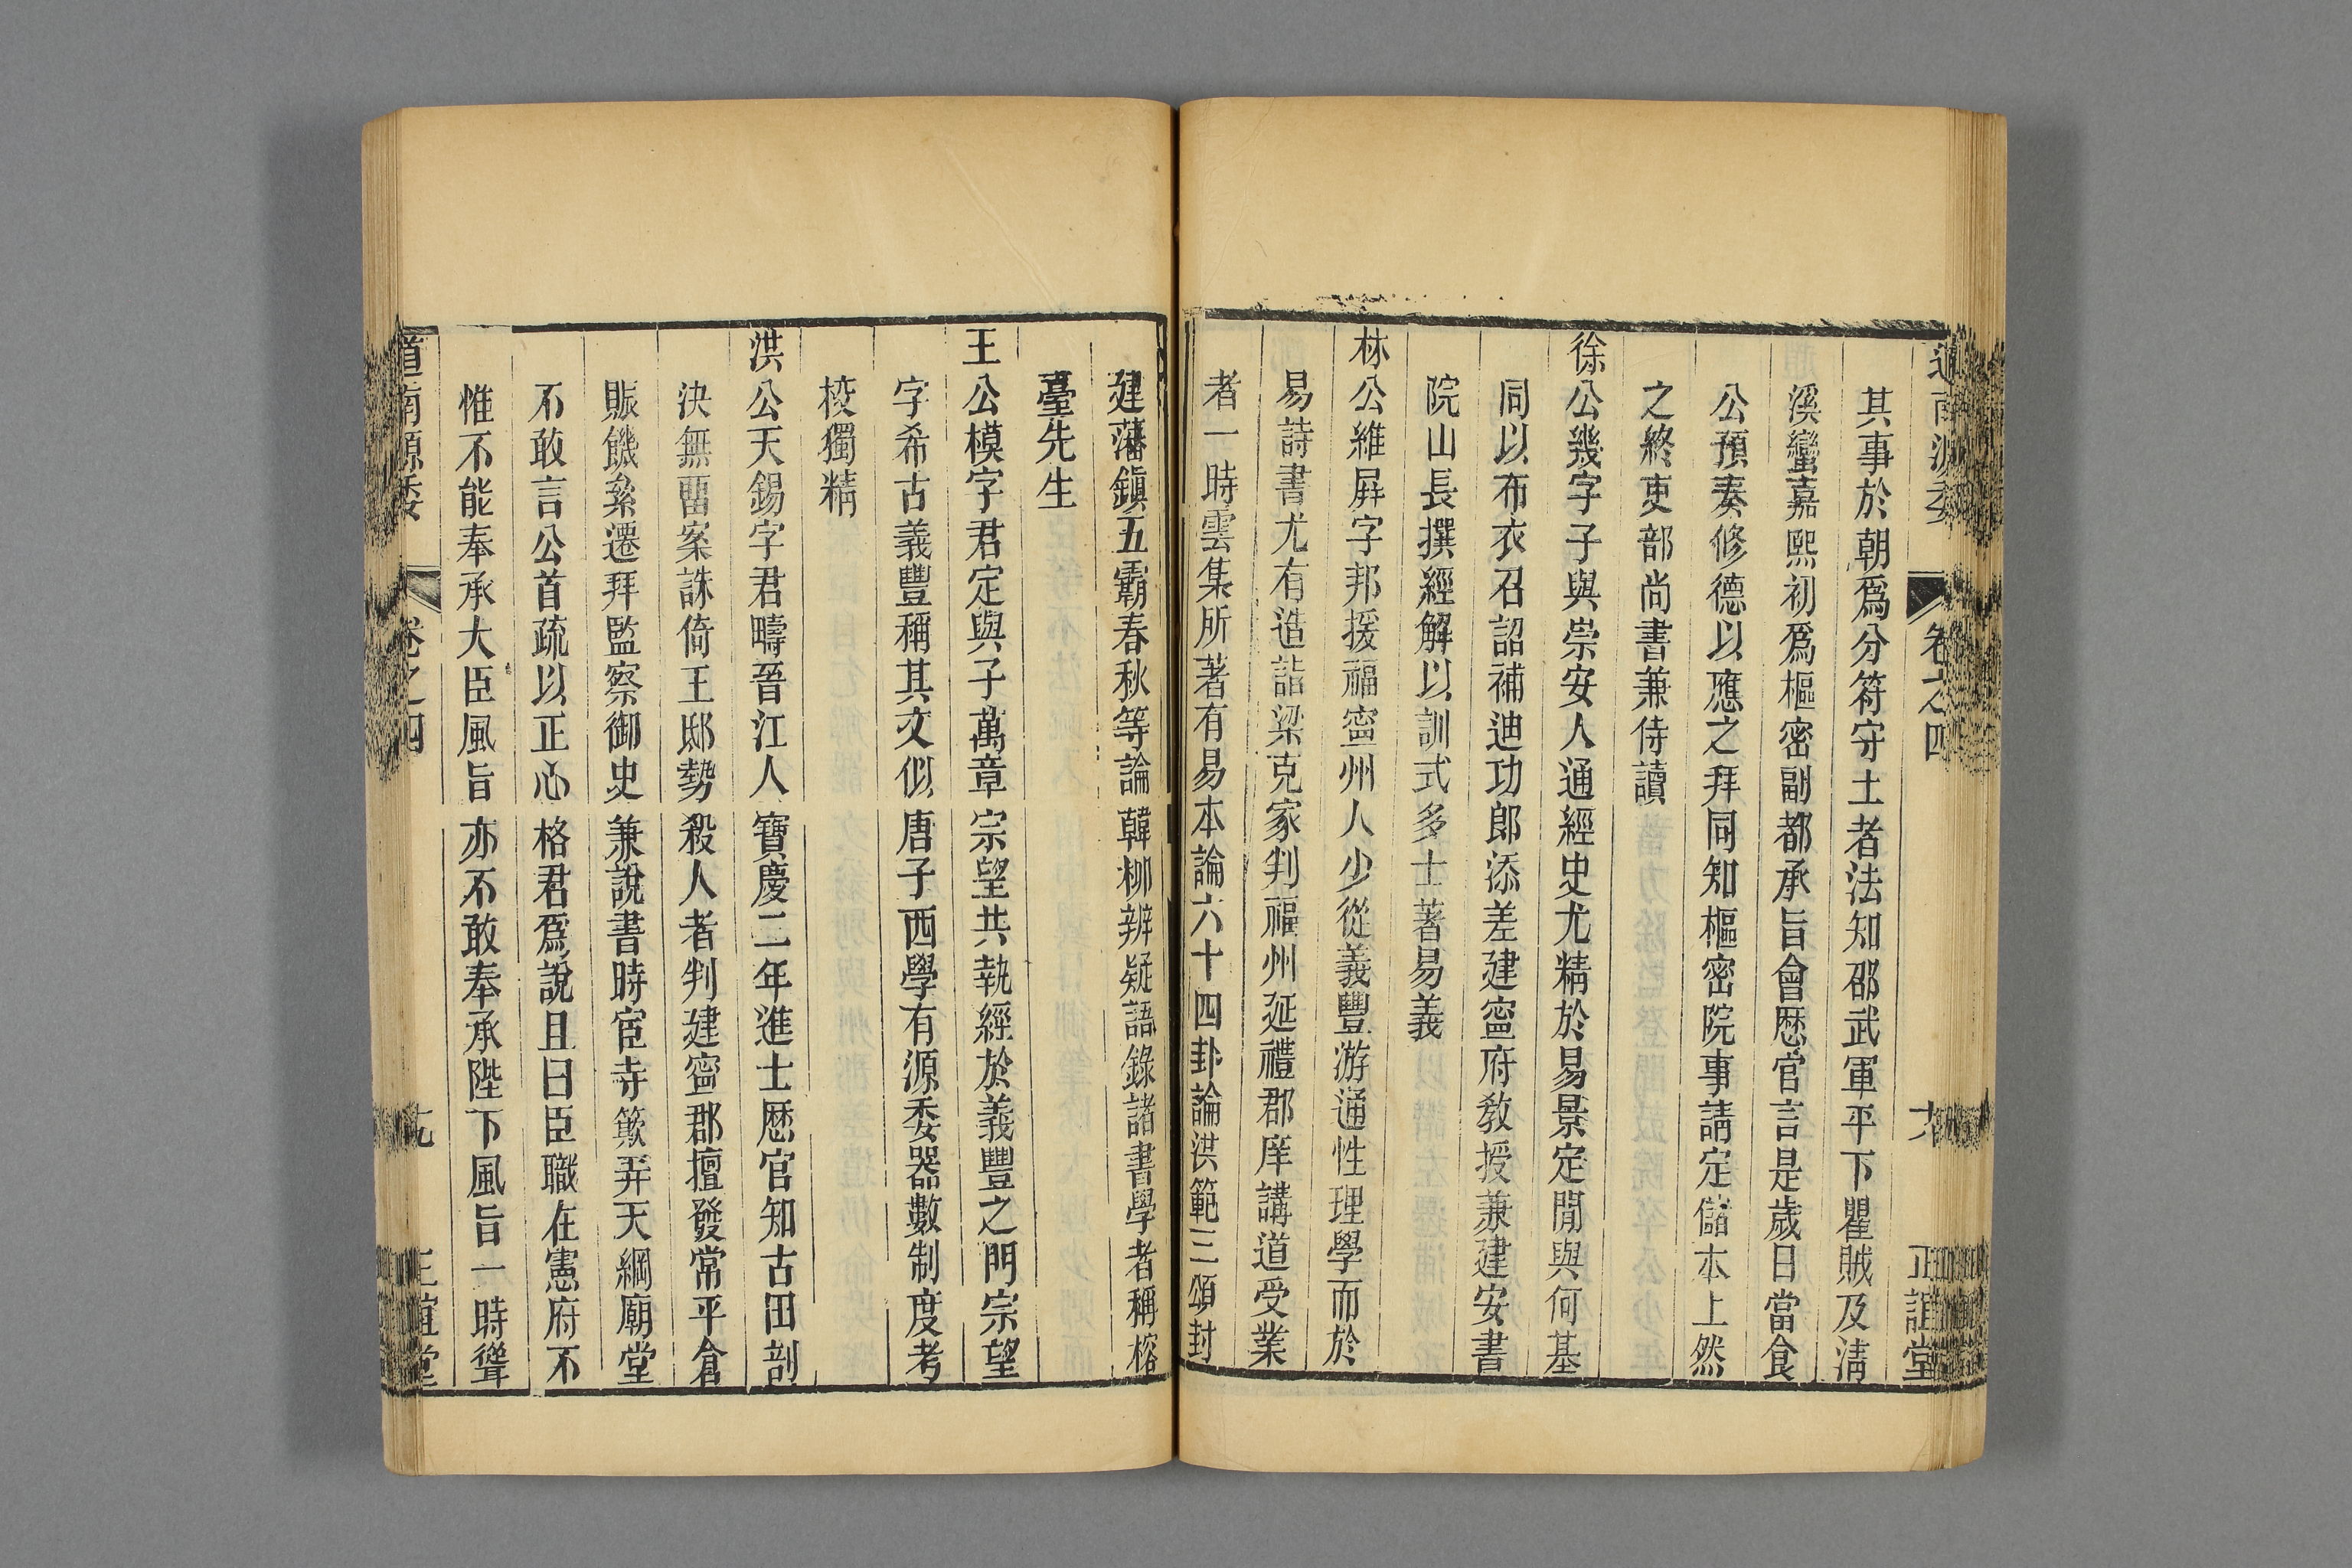 道南源委 卷之四 六 正誼堂
其事於朝爲分符守土者法知邵武軍平下瞿賊及淸
溪蠻嘉熙初爲樞密副都承旨會歴官言是歲日當食
公預奏修德以應之拜同知樞密院事請定儲本上然
之終吏部尚書兼侍讀
徐公幾字子與崇安人通經史尤精於易景定閒與何基
同以布衣召詔補迪功郎添差建寧府敎授兼建安書
院山長撰經解以訓式多士著易義
林公維屛字邦援福寧州人少從義豐游通性理學而於
易詩書尤有造詣梁克家判福州延禮郡庠講道受業
者一時雲集所著有易本論六十四卦論洪範三頌封
建藩鎭五霸春秋等論韓柳辨疑語錄諸書學者稱榕
臺先生
王公模字君定與子萬章宗望共執經於義豐之門宗望
字希古義豐稱其文似唐子西學有源委器數制度考
校獨精
洪公天錫字君疇晉江人寶慶二年進士歴官知古田剖
決無畱案誅倚王邸勢殺人者判建寧郡擅發常平倉
賑饑絫遷拜監察御史兼說書時宦寺簸弄天綱廟堂
不敢言公首疏以正心格君爲說且曰臣職在憲府不
惟不能奉承大臣風旨亦不敢奉承陛下風旨一時聳
道南源委 卷之四 正誼堂